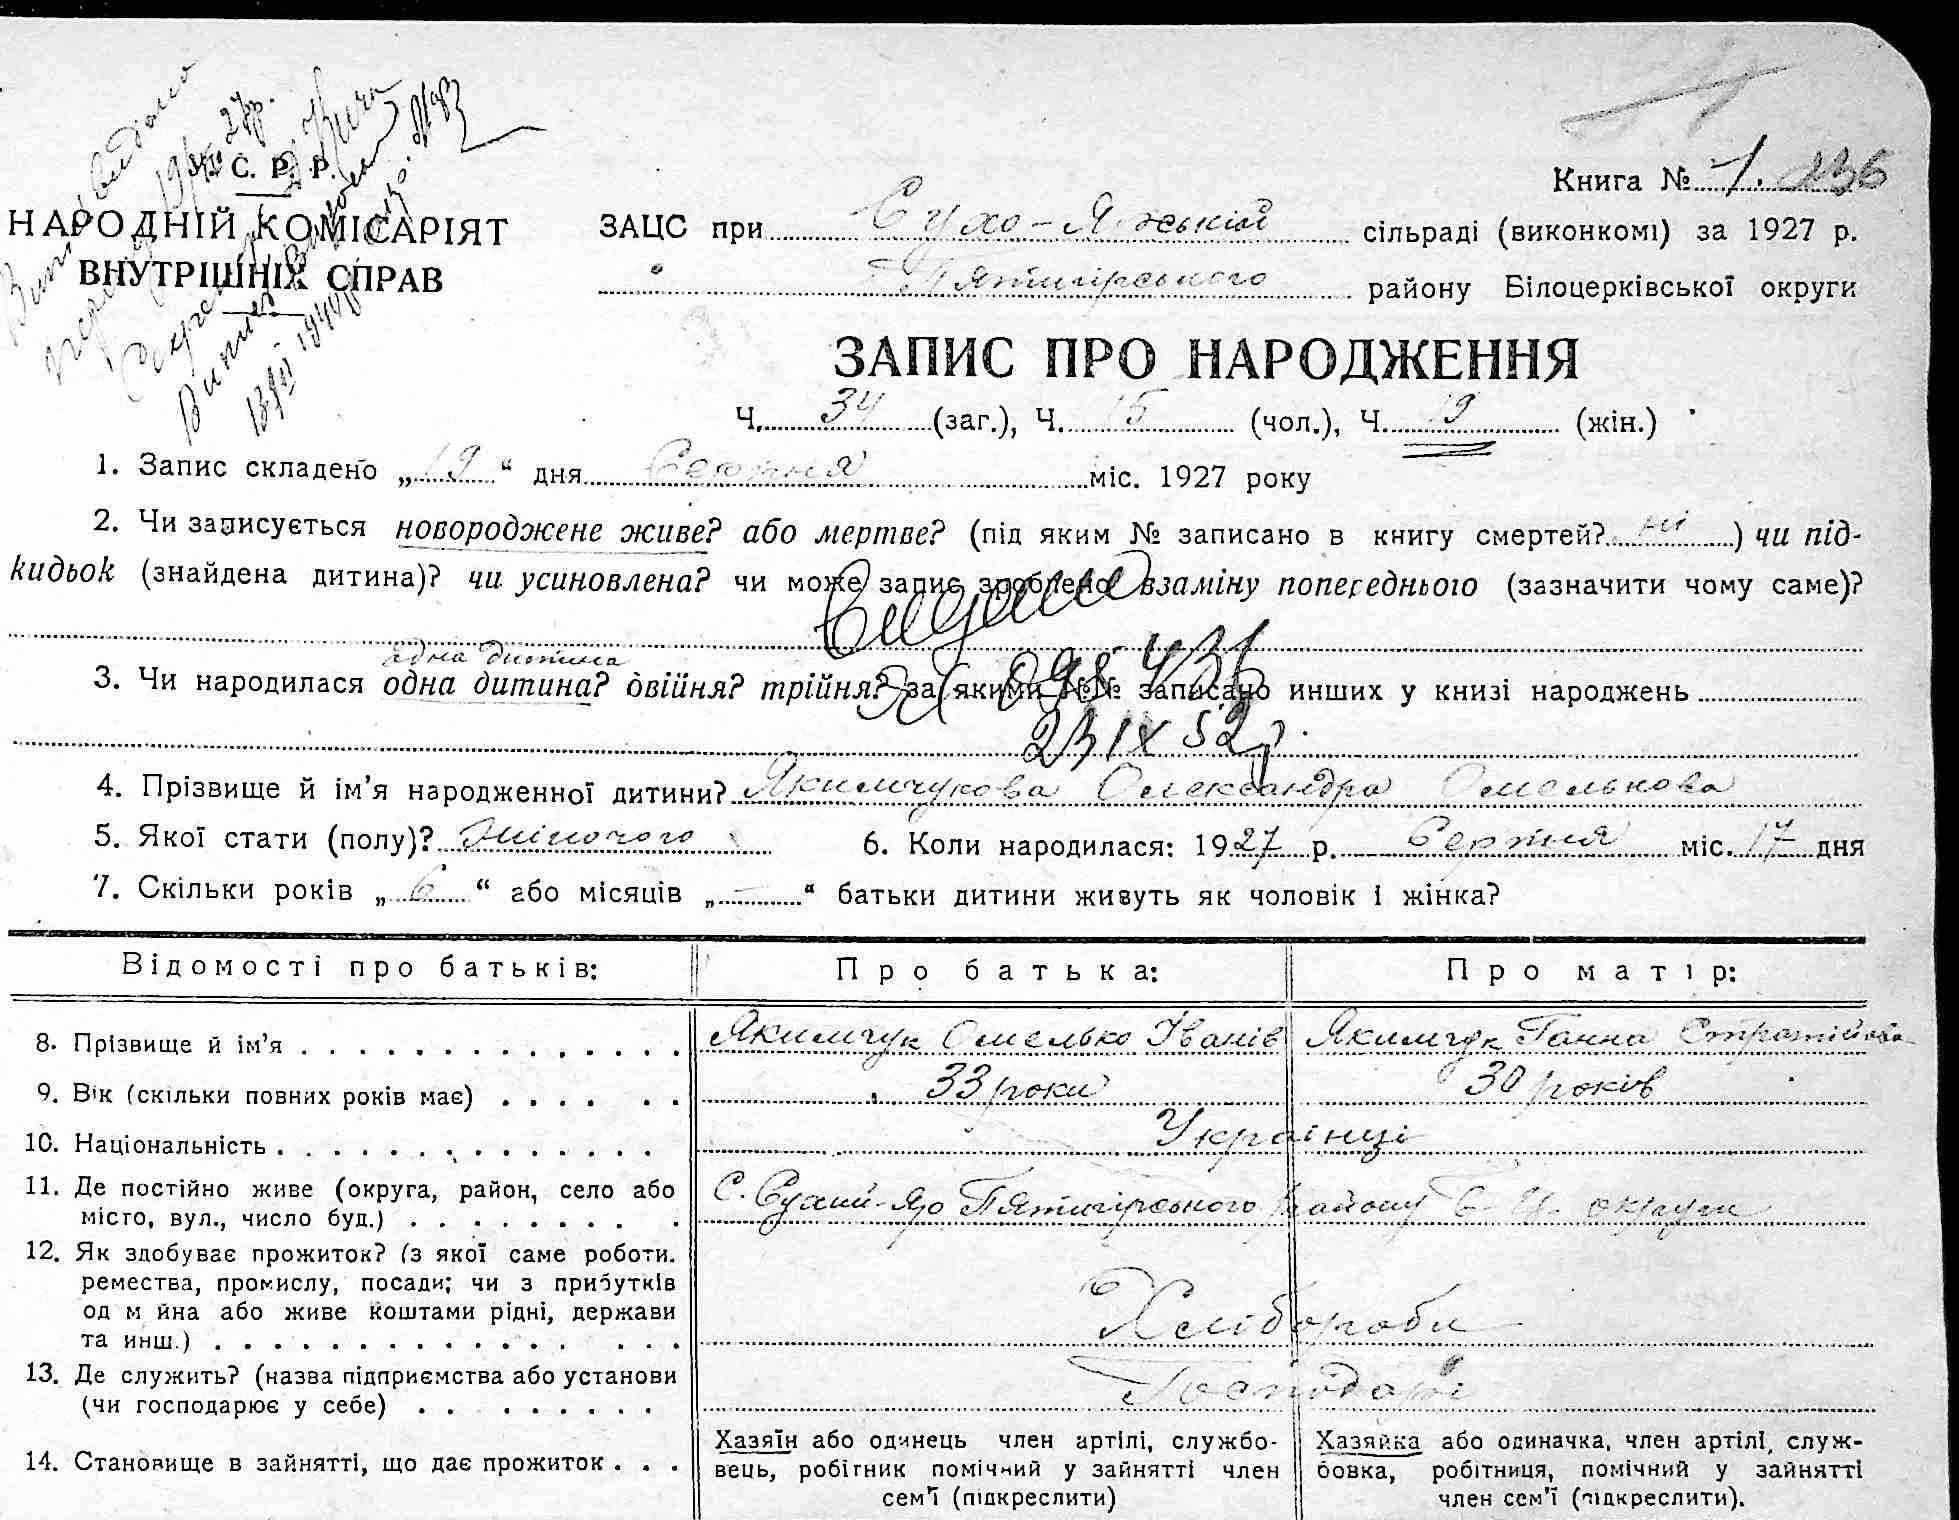 У. С. Р. Р.
НАРОДНІЙ КОМІСАРІЯТ
ВНУТРІШНІХ СПРАВ
Книга № 1. 236
ЗАЦС при Сухо-Ярській сільраді (виконкомі) за 1927 р.
" Пятигірського району Білоцерківської округи
ЗАПИС ПРО НАРОДЖЕННЯ
Ч. 34 (заг.), Ч. 15 (чол.), Ч. 19 (жін.)
1. Запис складено „ 19 “ дня Серпня міс. 1927 року
2. Чи записується новороджене живе? або мертве? (під яким № записано в книгу смертей? ні ) чи під-
кидьок (знайдена дитина)? чи усиновлена? чи може запис зроблено взаміну попереднього (зазначити чому саме)?
Видано
одна дитина
3. Чи народилася одна дитина? двійня? трійня? за якими №№ записано инших у книзі народжень
098436
23 IX 52 р.
4. Прізвище й ім’я народженної дитини? Якимчукова Олександра Омелькова
5. Якої стати (полу)? жіночого 6. Коли народилася: 1927 р. Серпня міс. 17 дня
7. Скільки років „ 6 “ або місяців „ — “ батьки дитини живуть як чоловік і жінка?
Відомості про батьків: Про батька: Про матір:
8. Прізвище й ім’я Якимчук Омелько Іванів Якимчук Ганна Стратійова
9. Вік (скільки повних років має) 33 роки 30 років
10. Національність Українці
11. Де постійно живе (округа, район, село або
місто, вул., число буд.) С. Сухий-Яр Пятигірського району Б-Ц. округи
12. Як здобуває прожиток? (з якої саме роботи.
ремества, промислу, посади; чи з прибутків
од м йна або живе коштами рідні, держави
та инш.) Хлібороби
13. Де служить? (назва підприємства або установи
(чи господарює у себе) Господарі
14. Становище в зайнятті, що дає прожиток
Хазяїн або одинець член артілі, службо-
вець, робітник помічний у зайнятті член
сем’ї (підкреслити)
Хазяйка або одиначка, член артілі, служ-
бовка, робітниця, помічний у зайнятті
член сем’ї (підкреслити).